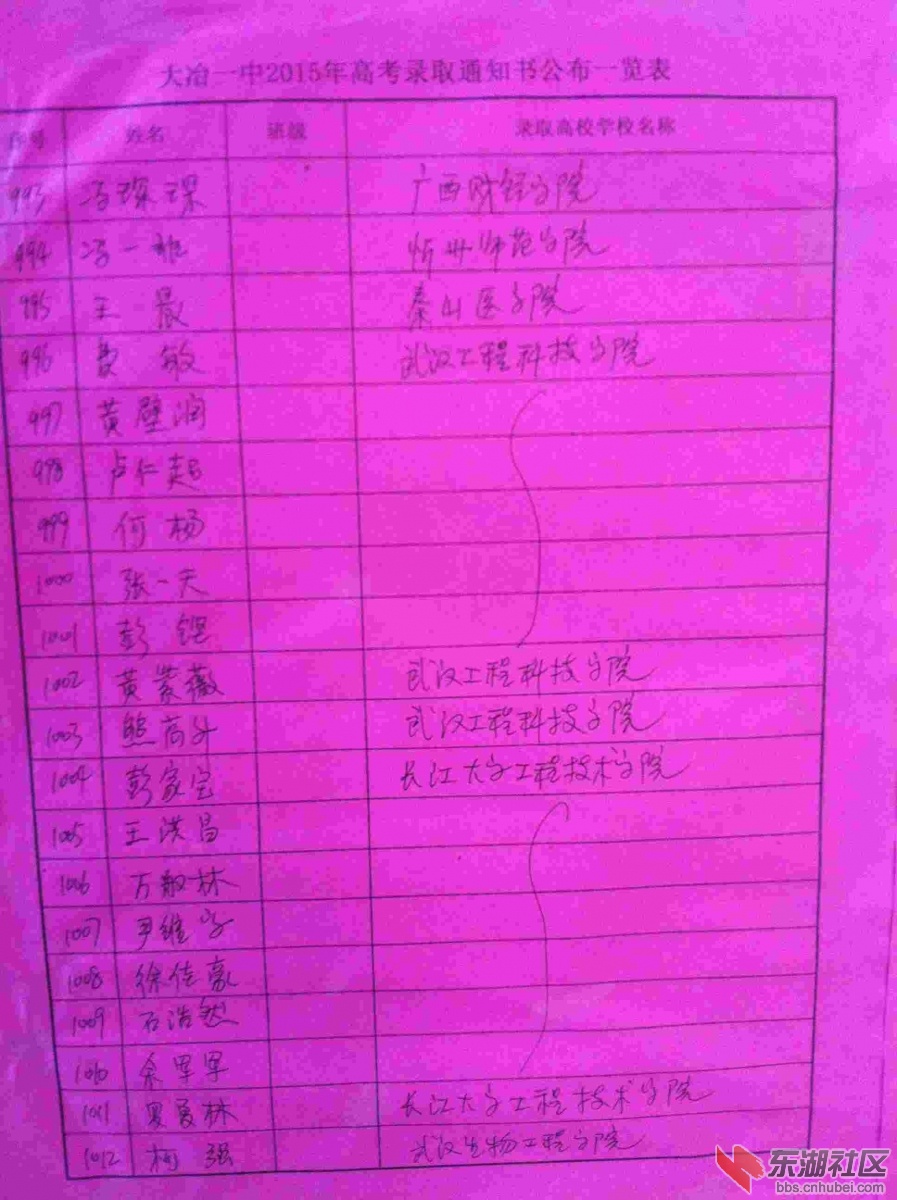 大冶一中2015年高考录取通知书公布一览表
序号 姓名 班级 录取高校学校名称
993 冯琛琛 广西财经学院
994 冯一雅 忻州师范学院
995 王晨 泰山医学院
996 曹敏 武汉工程科技学院
997 黄壁润
998 卢仁超
999 何杨
1000 张一天
1001 彭锟
1002 黄紫薇 武汉工程科技学院
1003 熊 武汉工程科技学院
1004 彭家宝 长江大学工程技术学院
1005 王洪昌
1006 万敏林
1007 尹维
1008 徐佳豪
1009 石浩然
1010 余畢畢
1011 林 长江大学工程技术学院
1012 柯强 武汉生物工程学院
东湖社区
bbs.cnhubei.com